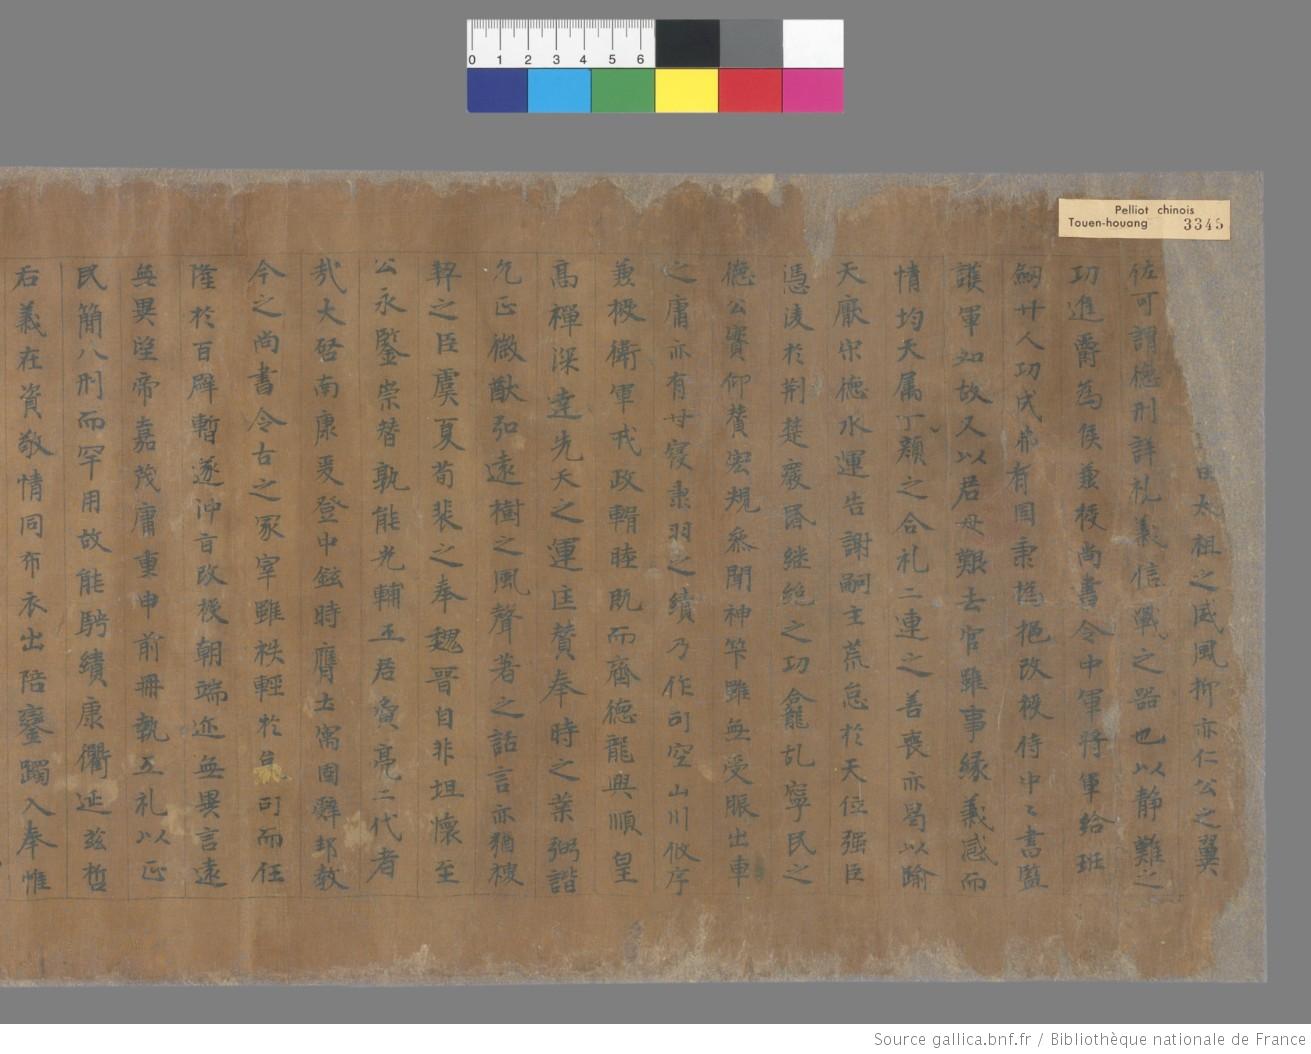 0 1 2 3 4 5 6
Pelliot chinois
Touen-houang 3345
曰太祖之威風抑亦仁公之翼
佐可謂德刑詳礼義信戰之器也以静難之
功進爵為侯兼授尚書令中軍将軍給班
劒廿人功成弗有固秉撝挹改授侍中〻書監
護軍如故又以居母艱去官雖事緣義感而
情均天属丁顔之合礼二連之善喪亦曷以踰
天厭宋德水運告謝嗣主荒怠於天位强臣
憑淩於荆楚廢昏継絶之功龕乱寧民之
德公實仰賛宏規叅聞神筭雖無受脤出車
之庸亦有甘寝秉羽之績乃作司空山川攸序
兼授衛軍戎政輯睦既而齊德龍興順皇
高禪深達先天之運匡賛奉時之業弼諧
允正徽猷弘遠樹之風聲著之話言亦猶稷
契之臣虞夏荀裴之奉魏晉自非坦懷至
公永鑒崇替孰能光輔五君寅亮二代者
哉大啓南康爰登中鉉時膺土寓固辤邦教
今之尚書令古之冢宰雖秩輕於台司而任
隆於百辟暫遂沖旨改授朝端迩無異言遠
無異望帝嘉茂庸重申前冊執五礼以正
民簡八刑而罕用故能騁績康衢延兹哲
右義在資敬情同布衣出陪鑾躅入奉惟
Source gallica.bnf.fr / Bibliothèque nationale de France